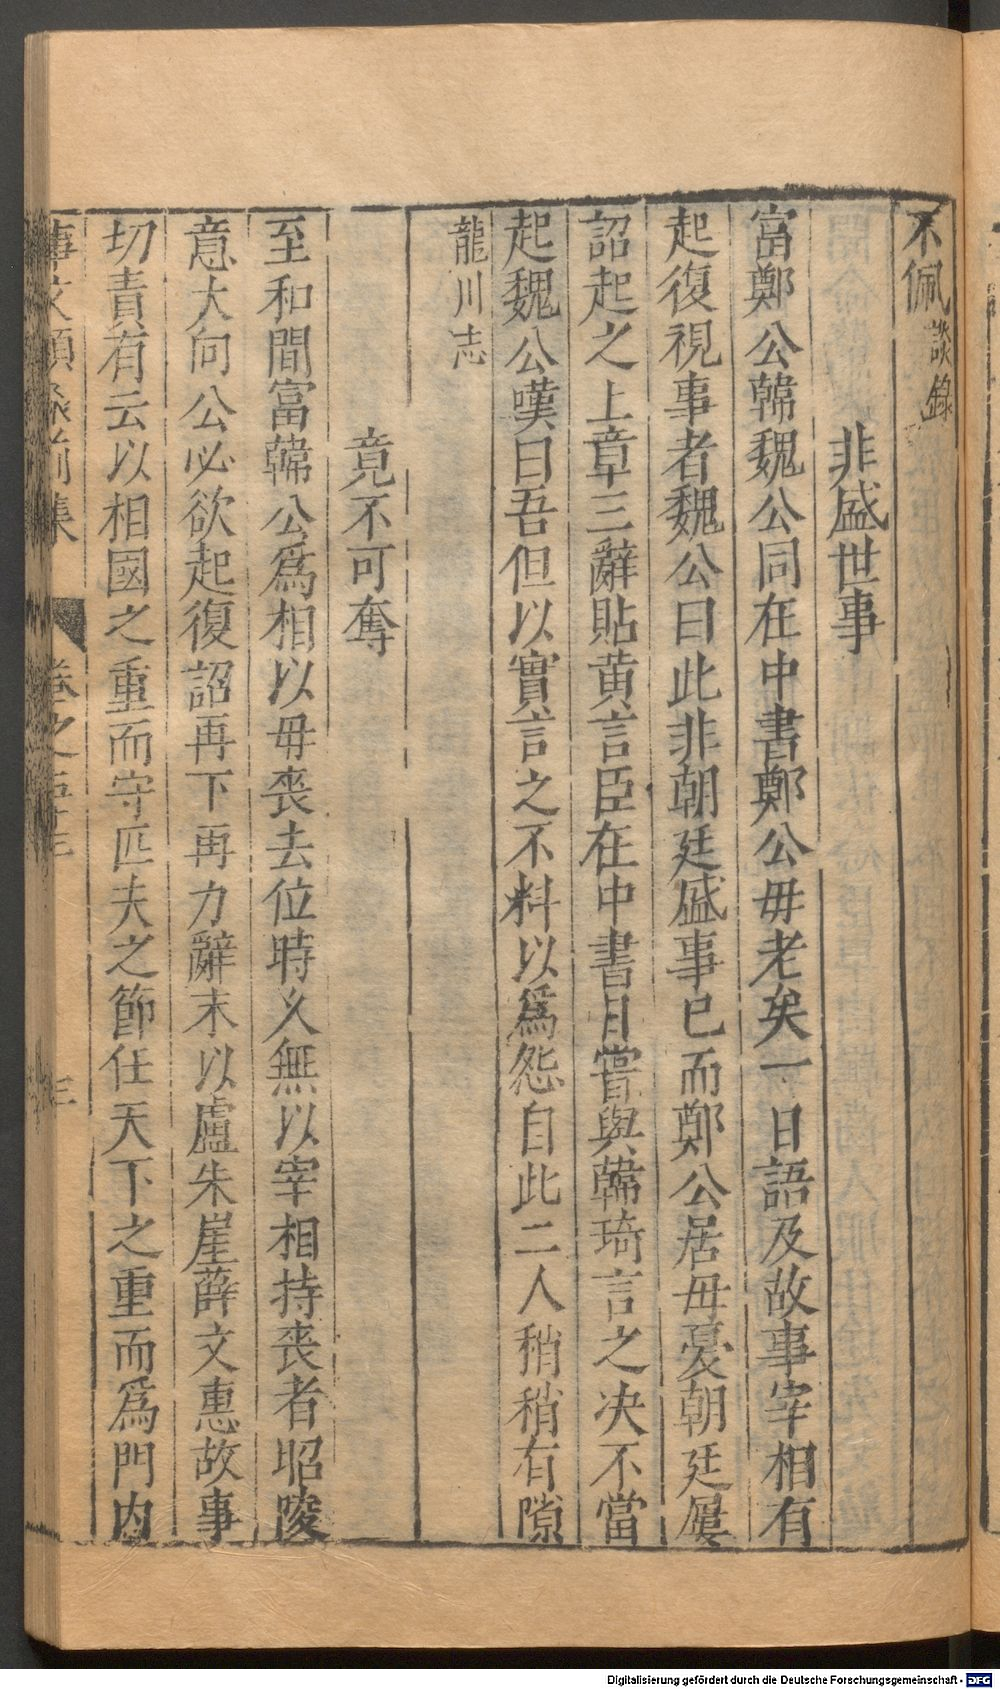 不佩談錄
非盛世事
富鄭公韓魏公同在中書鄭公毋老矣一日語及故事宰相有
起復視事者魏公曰此非朝廷盛事已而鄭公居毋憂朝廷屢
詔起之上章三辭貼黄言臣在中書日嘗與韓琦言之决不當
起魏公嘆曰吾但以實言之不料以爲怨自此二人稍稍有隙
龍川志
竟不可奪
至和間富韓公爲相以毋喪去位時久無以宰相持喪者昭陵
意大向公必欲起復詔再下再力辭末以盧朱崖薛文惠故事
切責有云以相國之重而守匹夫之節任天下之重而爲門内
事文類聚前集 卷之五十三 三
Digitalisierung gefördert durch die Deutsche Forschungsgemeinschaft - DFG